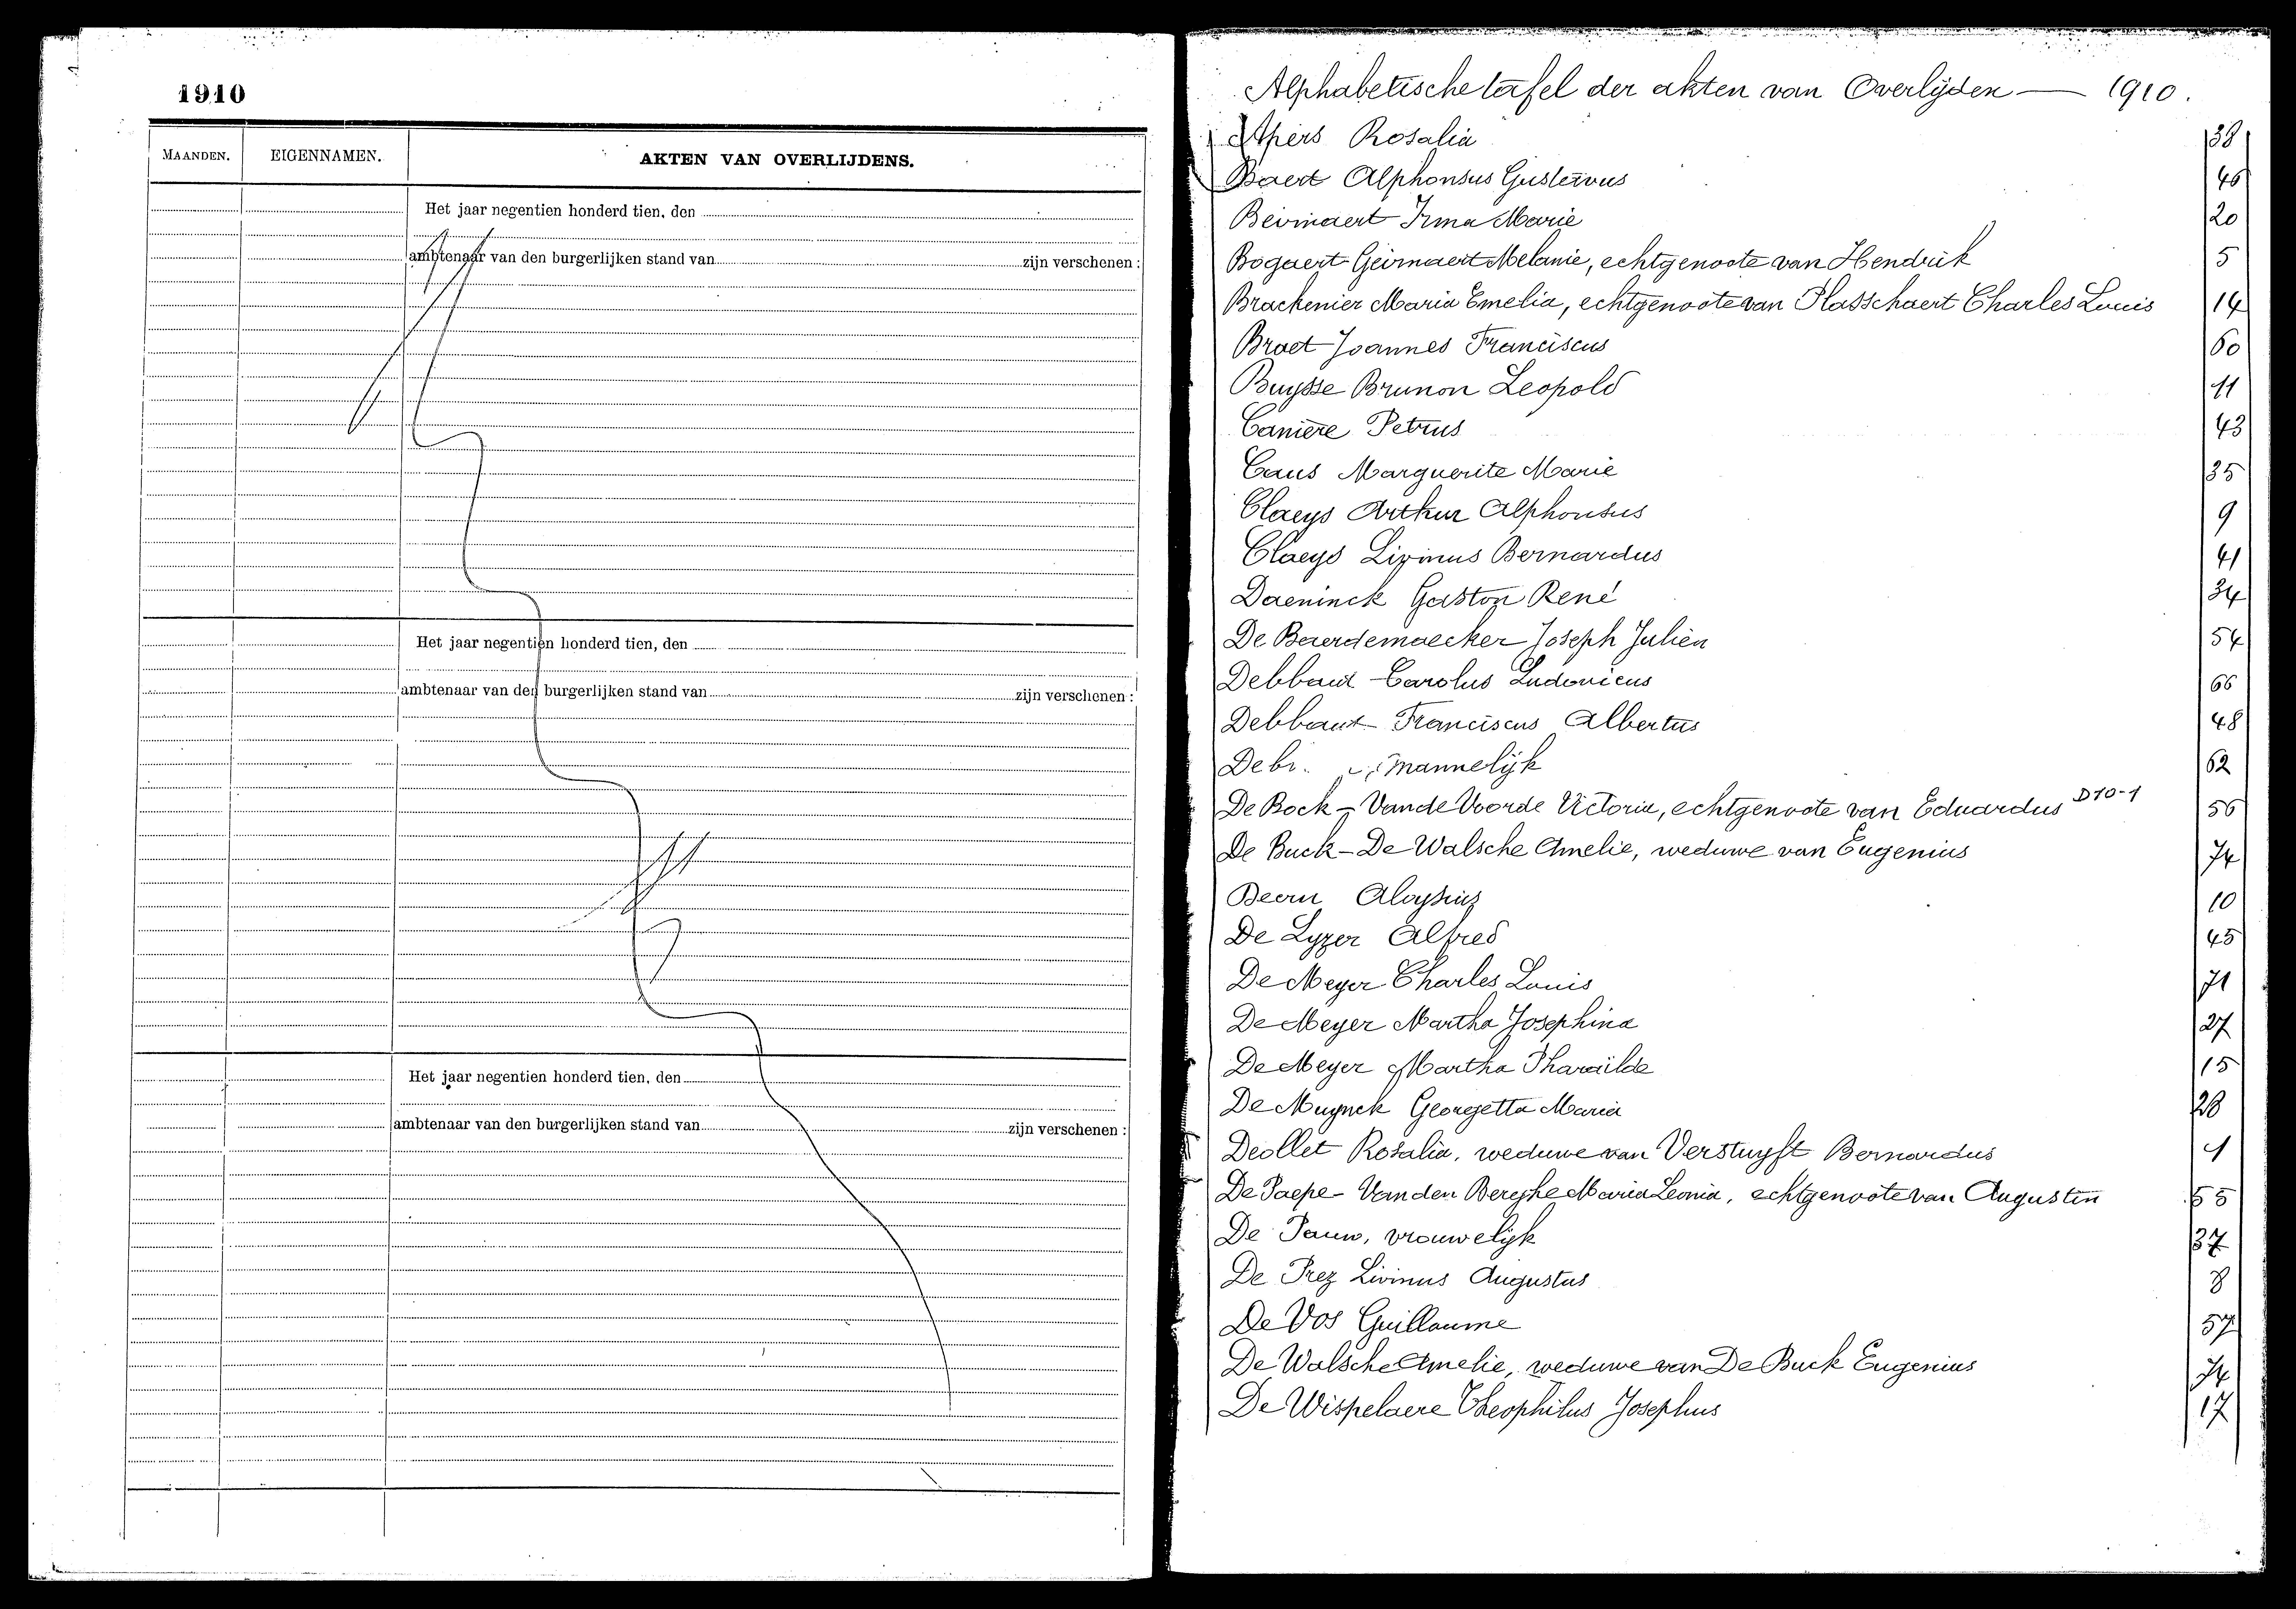 1910
MAANDEN. EIGENNAMEN. AKTEN VAN OVERLIJDENS.
Het jaar negentien honderd tien, den
ambtenaar van den burgerlijken stand van zijn verschenen :
Het jaar negentien honderd tien, den
ambtenaar van den burgerlijken stand van zijn verschenen :
Het jaar negentien honderd tien, den
ambtenaar van den burgerlijken stand van zijn verschenen :
Alphabetische tafel der akten van Overlijden — 1910.
Apers Rosalia 38
Baert Alphonsus Gustavus 46
Beirnaert Irma Marie 20
Bogaert Geirnaert Melanie, echtgenoote van Hendrik 5
Brackenier Maria Emelia, echtgenoote van Plasschaert Charles Louis 14
Braet Joannes Franciscus 60
Buysse Brunon Leopold 11
Canière Petrus 43
Caus Marguerite Marie 35
Claeys Arthur Alphonsus 9
Claeys Livinus Bernardus 41
Daeninck Gaston René 34
De Baerdemaecker Joseph Julien 54
Debbaut Carolus Ludovicus 66
Debbaut Franciscus Albertus 48
mannelijk 62
De Bock - Vande Voorde Victoria, echtgenoote van Eduardus D10-1 56
De Buck - De Walsche Amelie, weduwe van Eugenius 74
Aloysius 10
De Lyzer Alfred 45
De Meyer Charles Louis 71
De Meyer Martha Josephina 27
De Meyer Martha Pharaïlde 15
De Muynck Georgetta Maria 28
Deollet Rosalia, weduwe van Verstuyft Bernardus 1
De Paepe - Van den Berghe Maria Leonia, echtgenoote van Augustin 55
De Pauw, vrouwelijk 37
De Prez Livinus Augustus 8
De Vos Guillaume 57
De Walsche Amelie, weduwe van De Buck Eugenius 74
De Wispelaere Theophilus Josephus 17